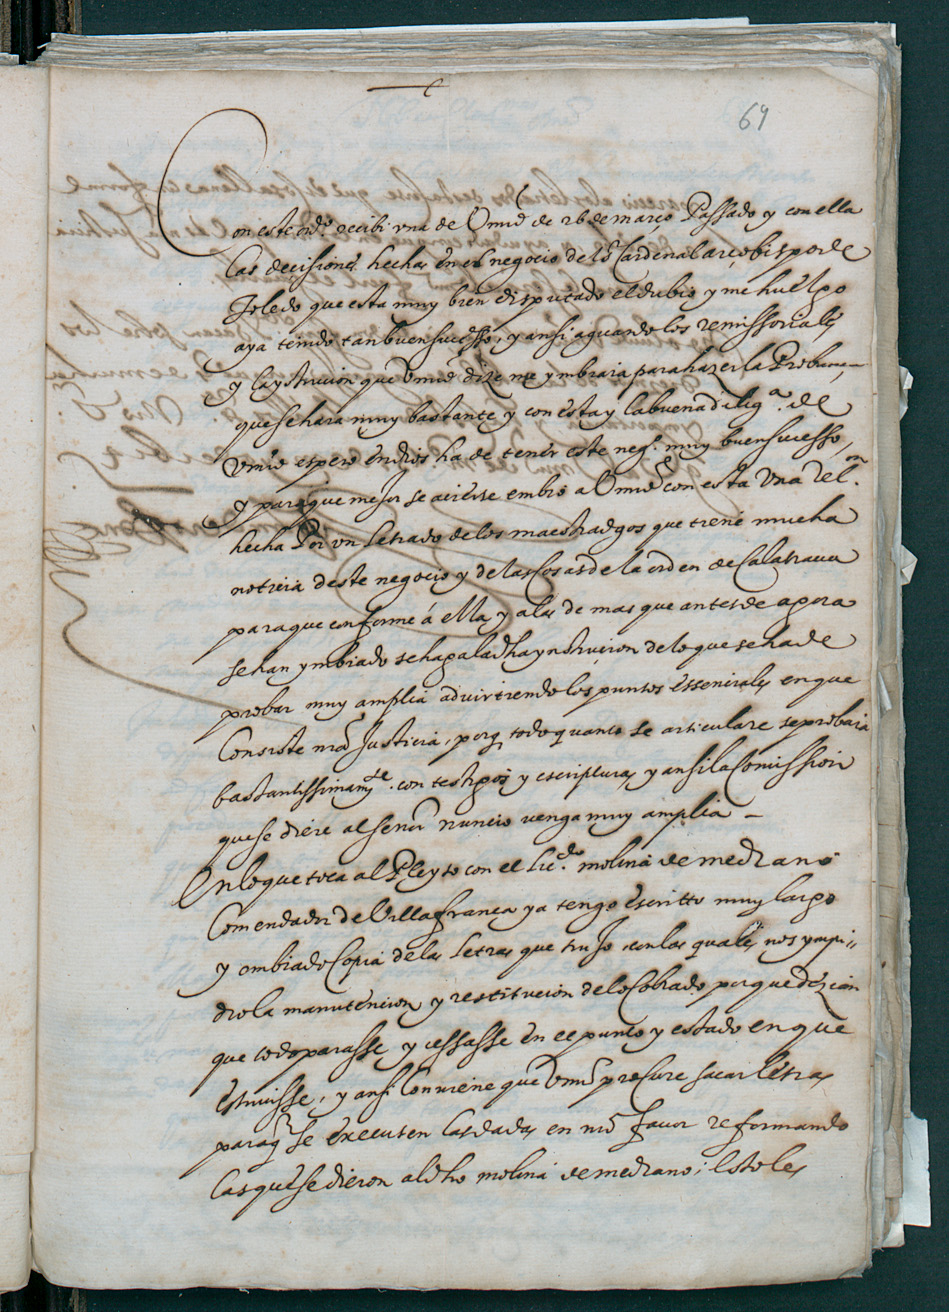 69
Con este ordº recibi una de Vmd de 26 de março Passado y con ella
las decisiones hechas en el negocio del Sr Cardenal arçobispo de
Toledo que esta muy bien disputado el dubio y me huelgo
aya tenido tan buen sucesso, y ansi aguardo los remissoriales
y la ystrucion que Vmd dize me ymbiara para hazer la Probança
que se hara muy bastante y con esta y la buena diligª de
Vmd espero en dios ha de tener este negº muy buen sucesso,
y para que mejor se acierte embio a Vmd con esta Una relon
hecha Por un letrado de los maestradgos que tiene mucha
noticia deste negocio y de las Cosas de la orden de Calatrava
para que conforme á ella y a las demas que antes de agora
se han ymbiado se haga la dha ynstrucion de lo que se ha de
probar muy amplia advirtiendo los puntos essenciales en que
Consiste nra Justicia, porq todo quanto se articulare se probara
bastantissimamte con testigos y escripturas, y ansi la Comission
que se diere al señor nuncio venga muy amplia –
En lo que toca al Pleyto con el Licdo molina de medrano
Comendador de Villafranca ya tengo escritto muy largo
y embiado Copia de las letras que trujo con las quales nos ympi-
dio la manutencion y restitucion de lo Cobrado porque dezian
que todo parasse y cessasse en el punto y estado en que
estuvisse, y ansi Conviene que Vmd procure sacar letras
paraq se executen las dadas en nro favor reformando
las que se dieron al dho molina de medrano; estoles